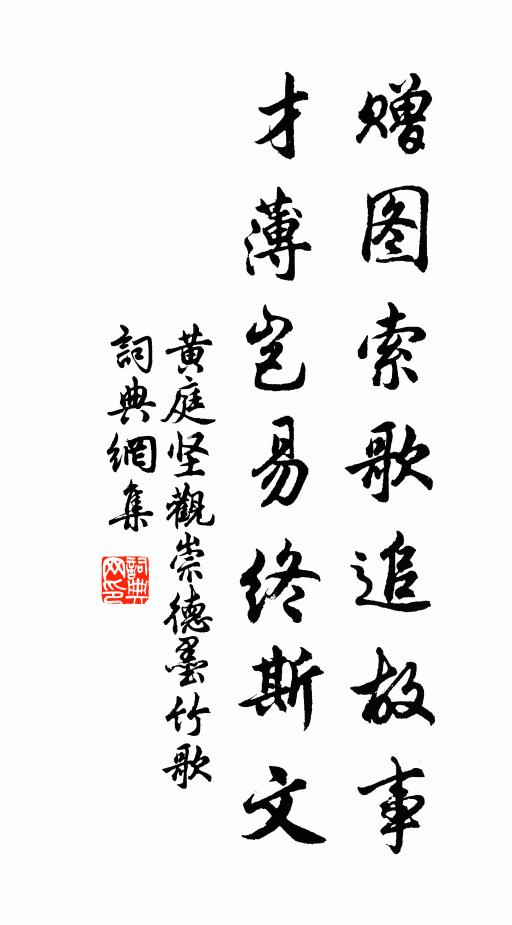 赠图索歌追故事
才薄岂易终斯文
黄庭坚觀崇德墨竹歌
詞典網集
詞典网印